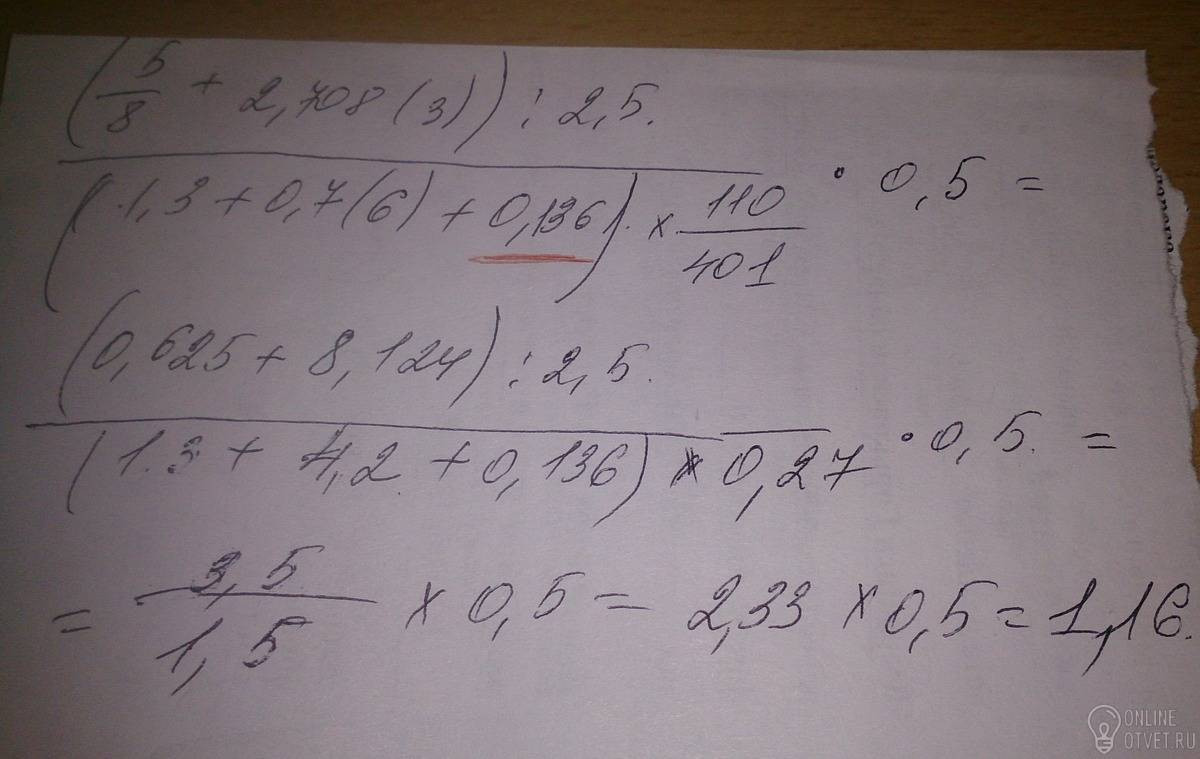 (5/8 + 2,708(3)) : 2,5.
(1,3 + 0,7(6) + 0,136) × 110/401 · 0,5 =
(0,625 + 8,124) : 2,5.
(1.3 + 4,2 + 0,136) × 0,27 · 0,5. =
= 3,5/1,5 × 0,5 = 2,33 × 0,5 = 1,16.
ONLINE
OTVET.RU